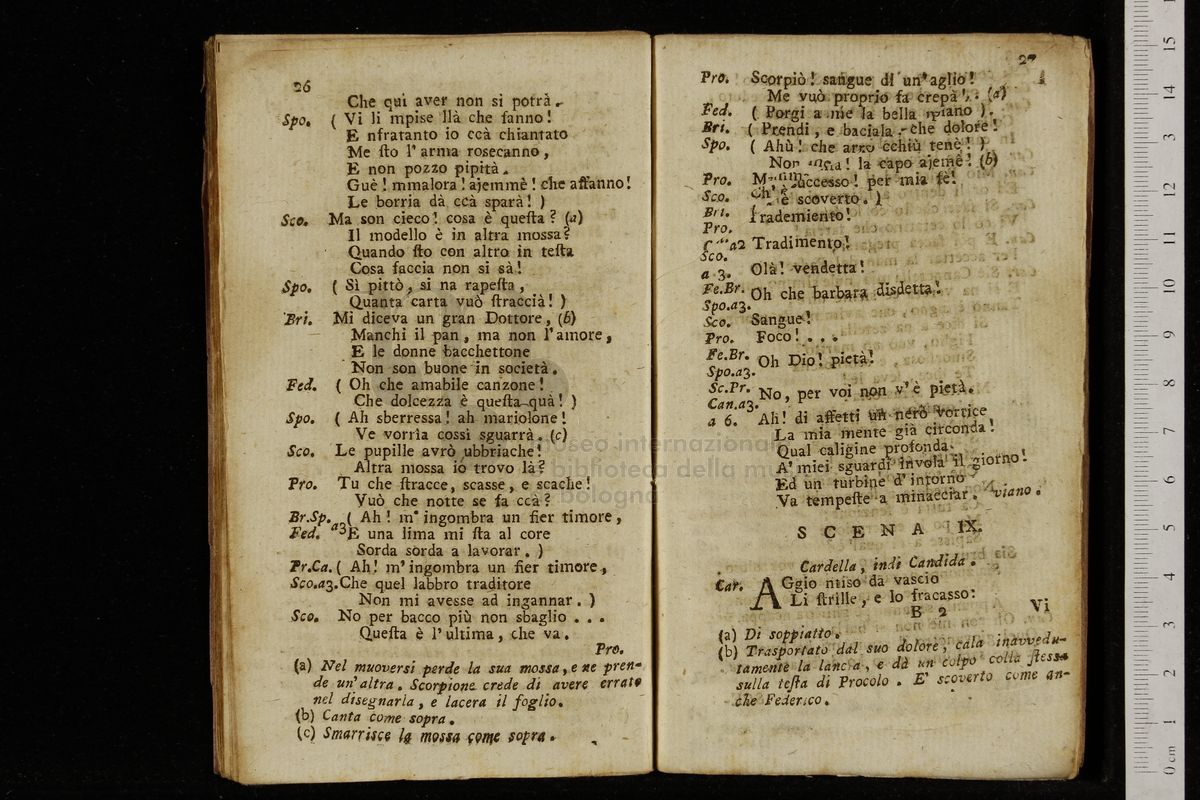 26
Che qui aver non si potrà.
Spo. ( Vi li mpise llà che fanno!
E nfratanto io ccà chiantato
Me ſto l' arma rosecanno,
E non pozzo pipità.
Guè! mmalora! ajemmè! che affanno!
Le borria dà ccà sparà! )
Sco. Ma son cieco! cosa è queſta? (a)
Il modello è in altra mossa?
Quando ſto con altro in teſta
Cosa faccia non si sà!
Spo. ( Sì pittò, si na rapeſta,
Quanta carta vuò ſtraccià! )
Bri. Mi diceva un gran Dottore, (b)
Manchi il pan, ma non l'amore,
E le donne bacchettone
Non son buone in società.
Fed. ( Oh che amabile canzone!
Che dolcezza è queſta quà! )
Spo. ( Ah sberressa! ah mariolone!
Ve vorrìa cossì sguarrà. (c)
Sco. Le pupille avrò ubbriache!
Altra mossa io trovo là?
Pro. Tu che ſtracce, scasse, e scache!
Vuò che notte se fa ccà?
Br.Sp. ( Ah! m' ingombra un fier timore,
Fed. a3 E una lima mi ſta al core
Sorda sorda a lavorar. )
Pr.Ca. ( Ah! m' ingombra un fier timore,
Sco.a3. Che quel labbro traditore
Non mi avesse ad ingannar. )
Sco. No per bacco più non sbaglio . . .
Queſta è l' ultima, che va.
Pro.
(a) Nel muoversi perde la sua mossa, e ne pren-
de un' altra. Scorpione crede di avere errato
nel disegnarla, e lacera il foglio.
(b) Canta come sopra.
(c) Smarrisce la mossa come sopra.
27
Pro. Scorpiò! sangue di un' aglio!
Me vuò proprio fa crepà! (a)
Fed. ( Porgi a me la bella mano ).
Bri. ( Prendi, e baciala. che dolore!
Spo. ( Ahù! che arro cchiù tenè! )
Non la capo ajemè! (b)
Pro. successo! per mia fè!
Sco. è scoverto. )
Bri. Trademiento!
Pro.
a2 Tradimento!
Sco.
a 3. Olà! vendetta!
Fe.Br. Oh che barbara disdetta!
Spo.a3.
Sco. Sangue!
Pro. Foco! . . .
Fe.Br. Oh Dio! pietà!
Spo.a3.
Sc.Pr. No, per voi non v' è pietà.
Can.a3.
a 6. Ah! di affetti un nero vortice
La mia mente già circonda!
Qual caligine profonda
A' miei sguardi invola il giorno!
Ed un turbine d' intorno
Va tempeſte a minacciar. viano.
SCENA IX.
Cardella, indi Candida.
Car. AGgio ntiso da vascio
Li ſtrille, e lo fracasso:
B 2
Vi
(a) Di soppiatto.
(b) Trasportato dal suo dolore, cala inavvedu-
tamente la lancia, e dà un colpo colla ſtessa
sulla teſta di Procolo. E' scoverto come an-
che Federico.
museo internazionale
biblioteca della mu
bologna
0 cm 1 2 3 4 5 6 7 8 9 10 11 12 13 14 15